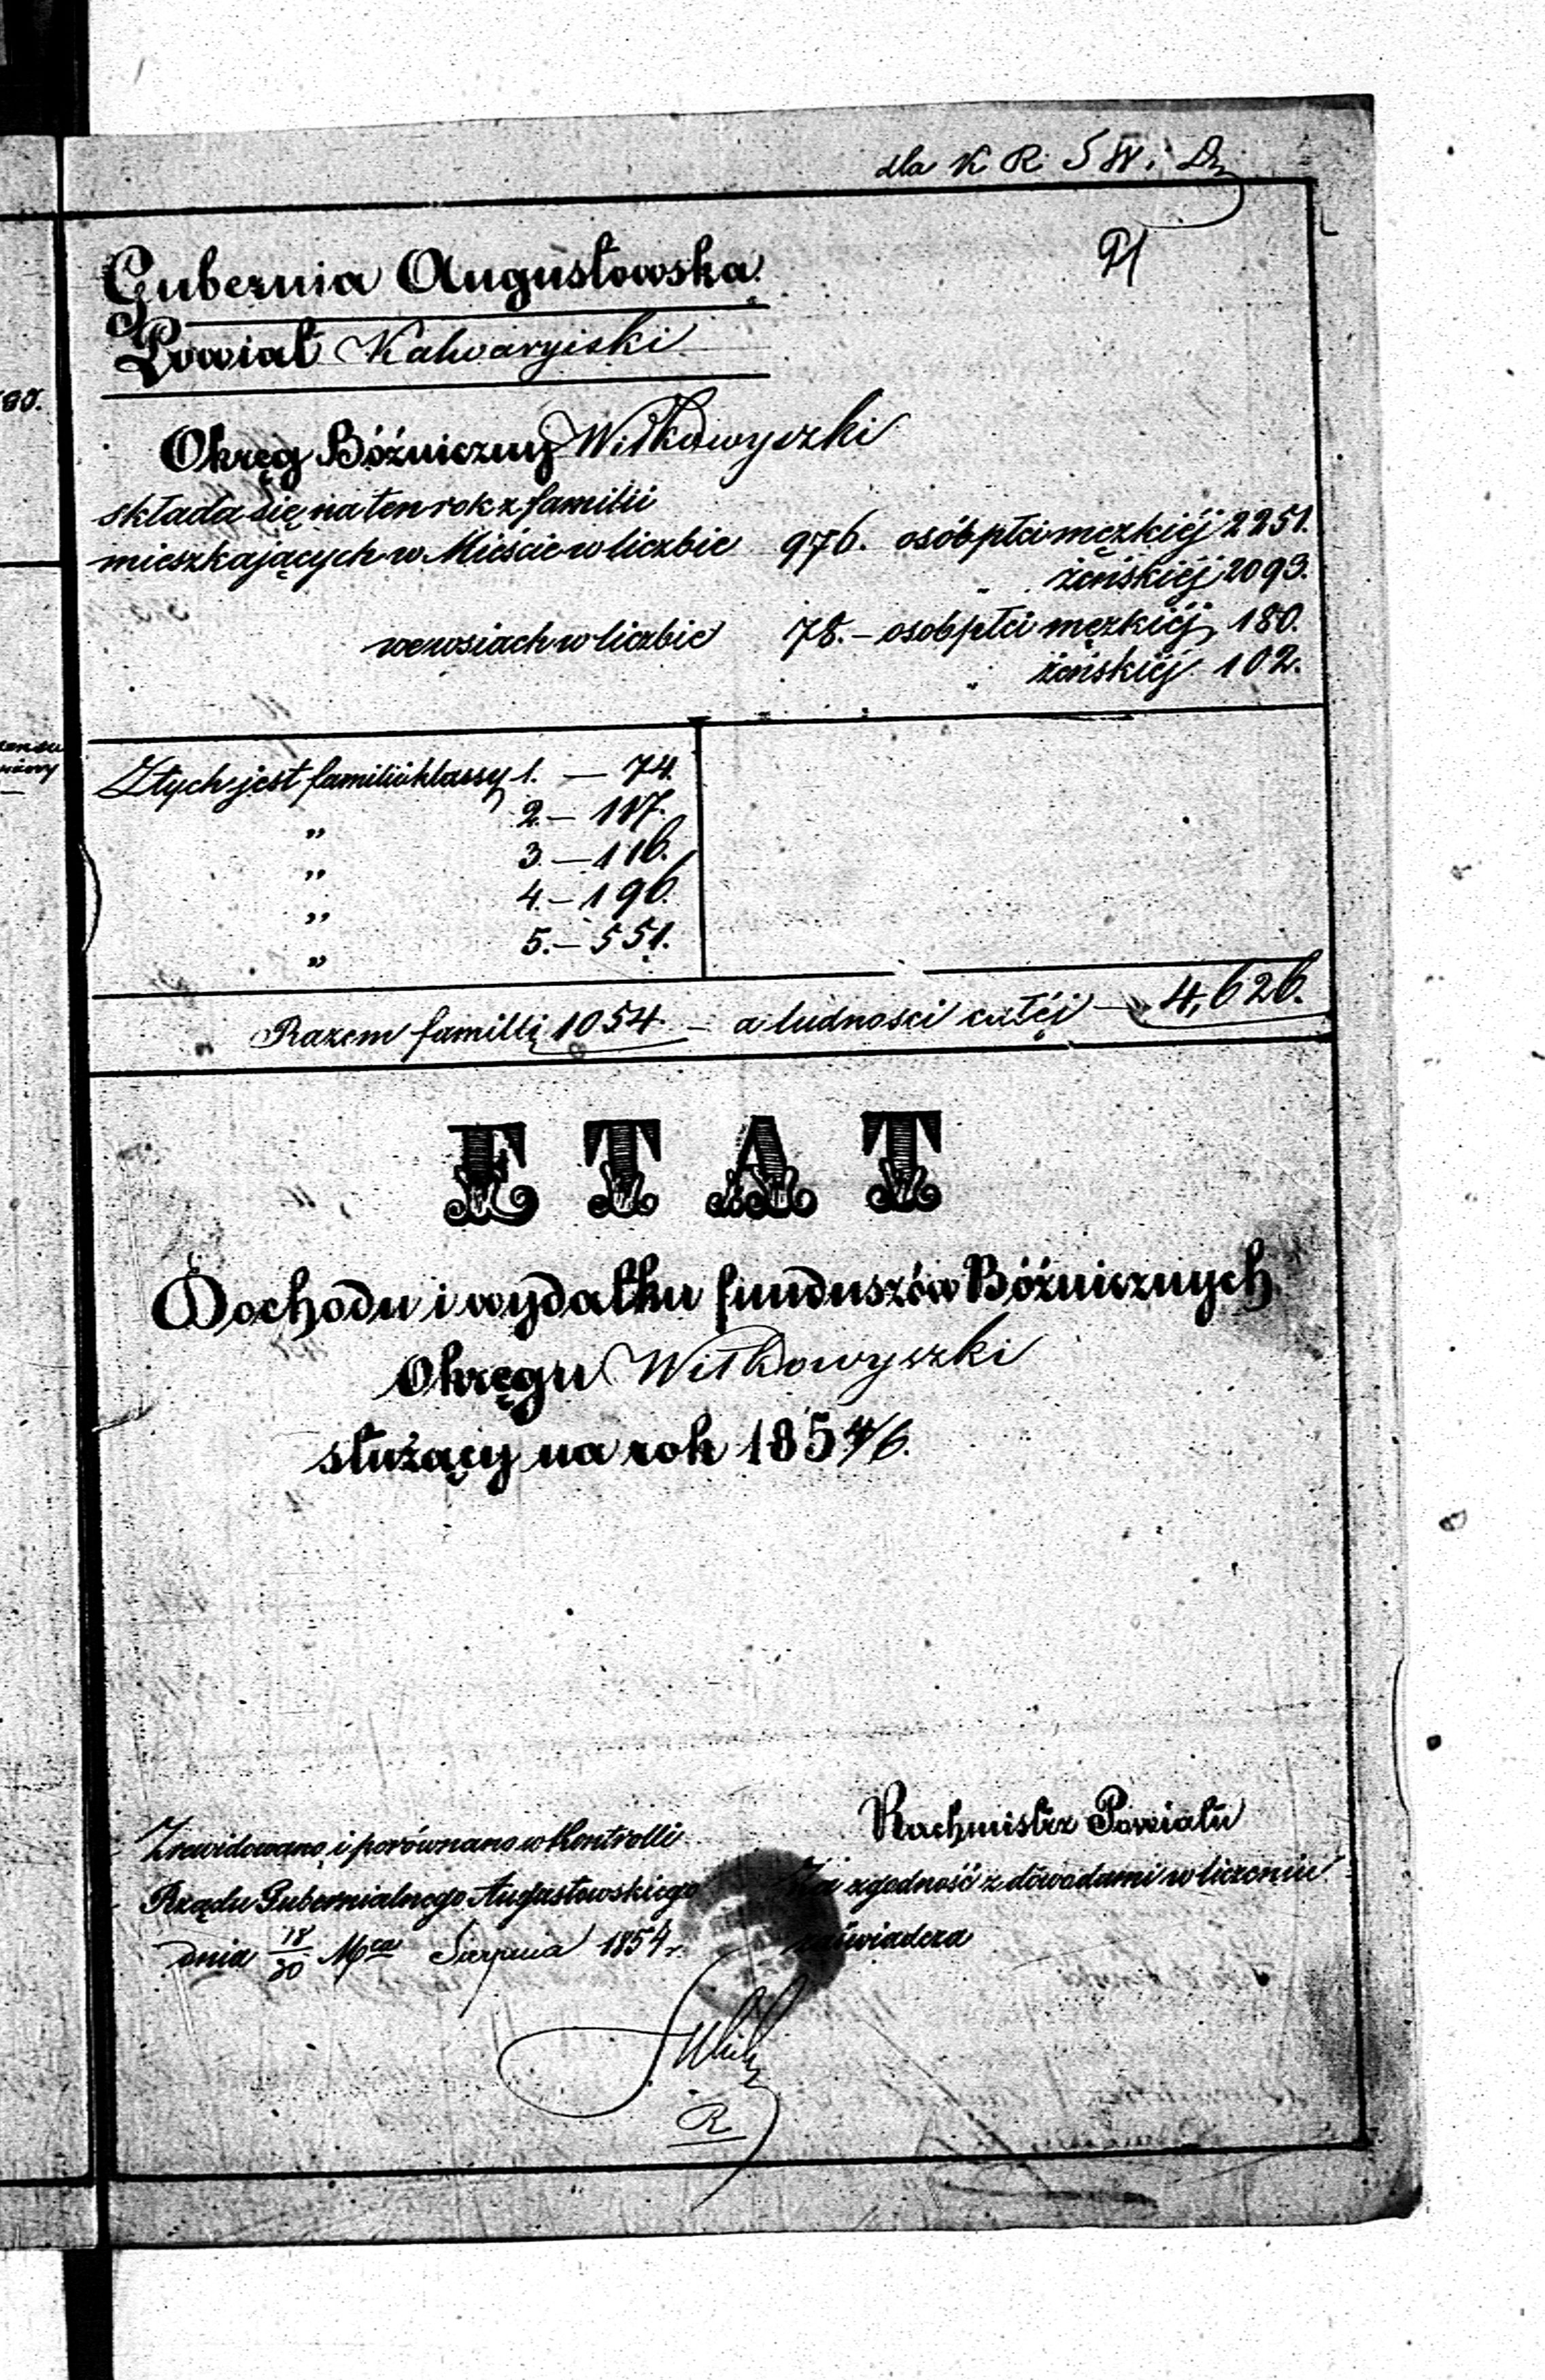 dla K R. S W. i D.
21
Gubernia Augustowska.
Powiat Kalwaryiski
Okręg Bóżniczny Wiłkowyszki
składa się na ten rok z familii
mieszkających w Mieście w liczbie 976. osób płci męzkiéj 2251.
„ żeńskiéj 2093.
we wsiach w liczbie 78. – osob płci męzkiéj 180.
„ żeńskiéj 102.
Z tych jest familii klassy 1. — 74.
„ 2. — 117.
„ 3. — 116.
„ 4. — 196.
„ 5. — 551.
Razem familii 1054. – a ludnosci całéj — 4,626.
ETAT
Dochodu i wydatku funduszów Bóżnicznych
Okręgu Wiłkowyszki
służący na rok 1854/6.
Zrewidowano i porównano w Kontrolli
Rządu Gubernialnego Augustowskiego
dnia 18/30 Mca Sierpnia 1854 r.
Rachmistrz Powiatu
Za zgodność z dowodami w liczeniu
zaświadcza
R